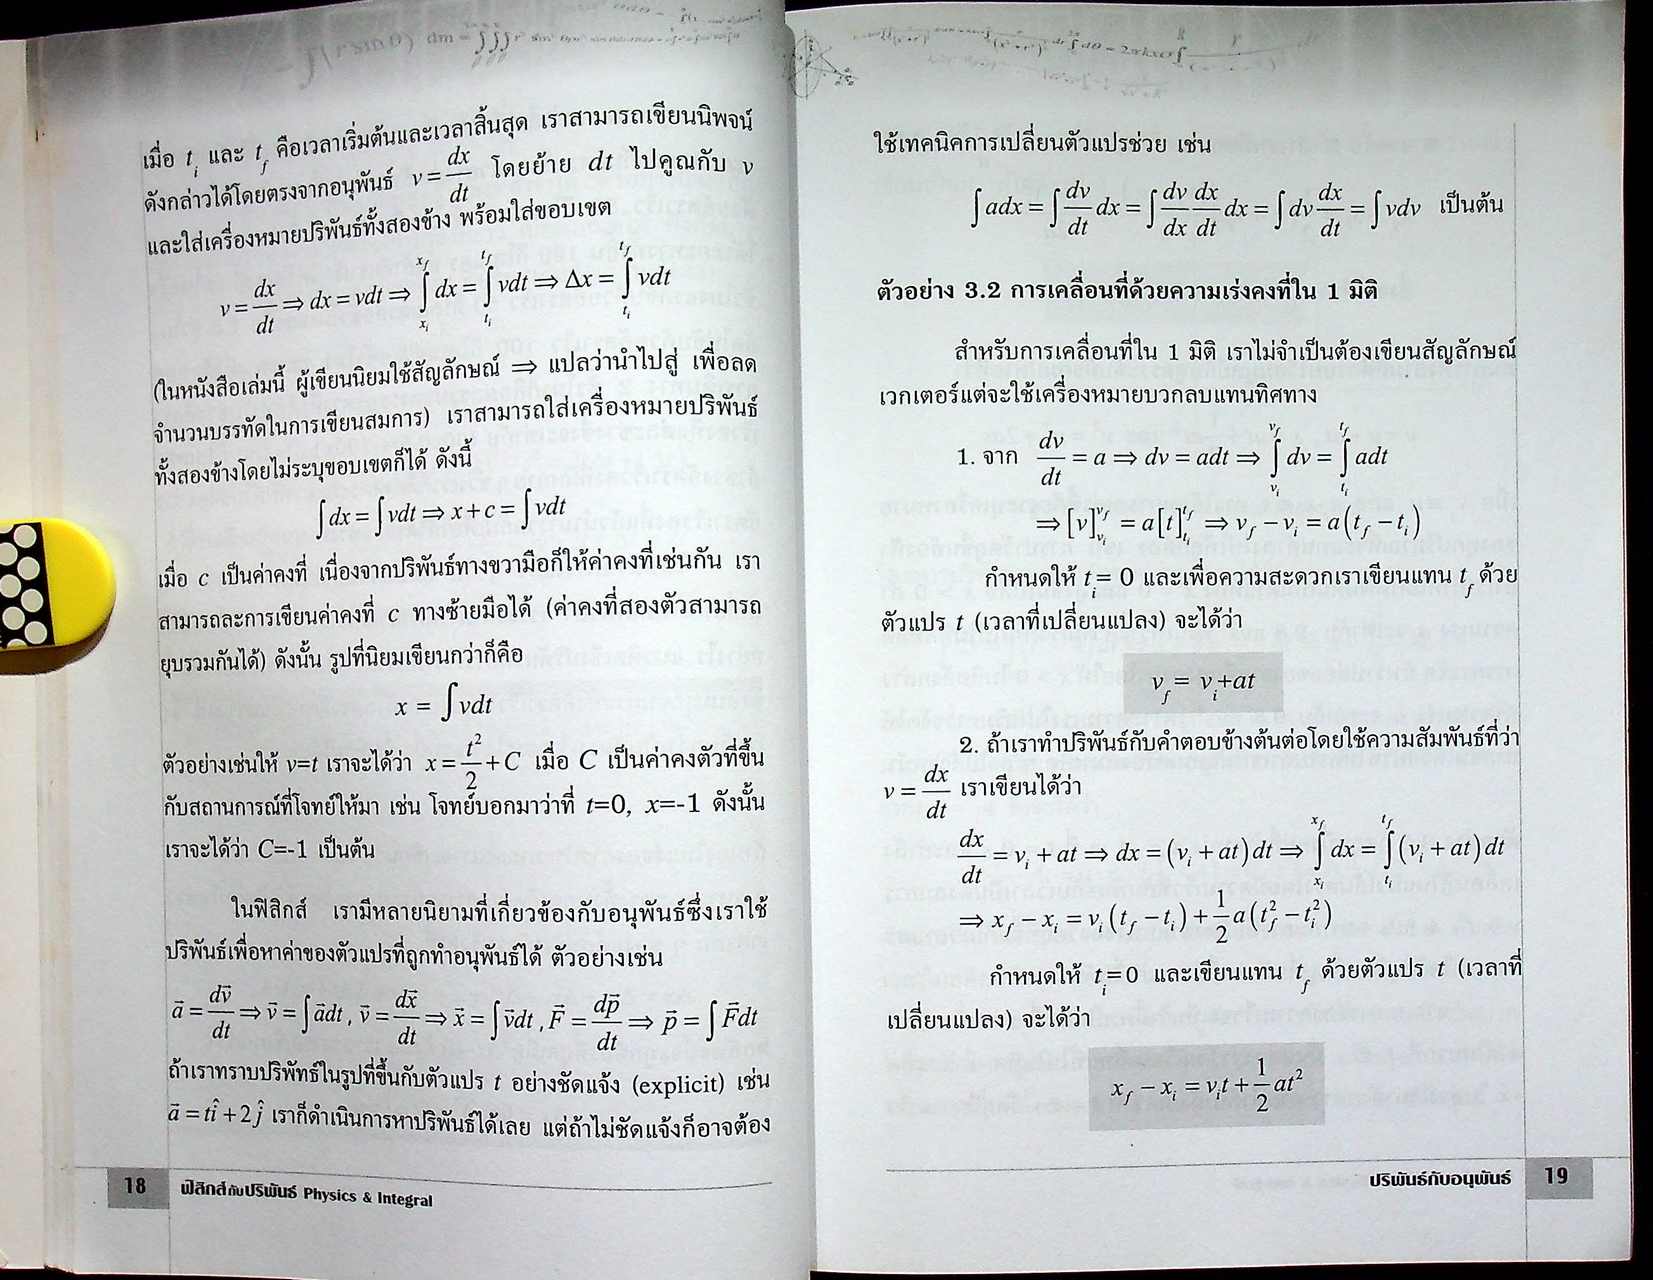 เมื่อ t_i และ t_f คือเวลาเริ่มต้นและเวลาสิ้นสุด เราสามารถเขียนนิพจน์
ดังกล่าวได้โดยตรงจากอนุพันธ์ v = dx/dt โดยย้าย dt ไปคูณกับ v
และใส่เครื่องหมายปริพันธ์ทั้งสองข้าง พร้อมใส่ขอบเขต
v = dx/dt ⇒ dx = vdt ⇒ ∫_{x_i}^{x_f} dx = ∫_{t_i}^{t_f} vdt ⇒ Δx = ∫_{t_i}^{t_f} vdt
(ในหนังสือเล่มนี้ ผู้เขียนนิยมใช้สัญลักษณ์ ⇒ แปลว่านำไปสู่ เพื่อลด
จำนวนบรรทัดในการเขียนสมการ) เราสามารถใส่เครื่องหมายปริพันธ์
ทั้งสองข้างโดยไม่ระบุขอบเขตก็ได้ ดังนี้
∫dx = ∫vdt ⇒ x + c = ∫vdt
เมื่อ c เป็นค่าคงที่ เนื่องจากปริพันธ์ทางขวามือก็ให้ค่าคงที่เช่นกัน เรา
สามารถละการเขียนค่าคงที่ c ทางซ้ายมือได้ (ค่าคงที่สองตัวสามารถ
ยุบรวมกันได้) ดังนั้น รูปที่นิยมเขียนกว่าก็คือ
x = ∫vdt
ตัวอย่างเช่นให้ v=t เราจะได้ว่า x = t²/2 + C เมื่อ C เป็นค่าคงตัวที่ขึ้น
กับสถานการณ์ที่โจทย์ให้มา เช่น โจทย์บอกมาว่าที่ t=0, x=-1 ดังนั้น
เราจะได้ว่า C=-1 เป็นต้น
ในฟิสิกส์ เรามีหลายนิยามที่เกี่ยวข้องกับอนุพันธ์ซึ่งเราใช้
ปริพันธ์เพื่อหาค่าของตัวแปรที่ถูกทำอนุพันธ์ได้ ตัวอย่างเช่น
a⃗ = dv⃗/dt ⇒ v⃗ = ∫a⃗dt, v⃗ = dx⃗/dt ⇒ x⃗ = ∫v⃗dt, F⃗ = dp⃗/dt ⇒ p⃗ = ∫F⃗dt
ถ้าเราทราบปริพัทธ์ในรูปที่ขึ้นกับตัวแปร t อย่างชัดแจ้ง (explicit) เช่น
a⃗ = tî + 2ĵ เราก็ดำเนินการหาปริพันธ์ได้เลย แต่ถ้าไม่ชัดแจ้งก็อาจต้อง
18 ฟิสิกส์กับปริพันธ์ Physics & Integral
ใช้เทคนิคการเปลี่ยนตัวแปรช่วย เช่น
∫adx = ∫dv/dt dx = ∫dv/dx dx/dt dx = ∫dv dx/dt = ∫vdv เป็นต้น
ตัวอย่าง 3.2 การเคลื่อนที่ด้วยความเร่งคงที่ใน 1 มิติ
สำหรับการเคลื่อนที่ใน 1 มิติ เราไม่จำเป็นต้องเขียนสัญลักษณ์
เวกเตอร์แต่จะใช้เครื่องหมายบวกลบแทนทิศทาง
1. จาก dv/dt = a ⇒ dv = adt ⇒ ∫_{v_i}^{v_f} dv = ∫_{t_i}^{t_f} adt
⇒ [v]_{v_i}^{v_f} = a[t]_{t_i}^{t_f} ⇒ v_f − v_i = a(t_f − t_i)
กำหนดให้ t_i = 0 และเพื่อความสะดวกเราเขียนแทน t_f ด้วย
ตัวแปร t (เวลาที่เปลี่ยนแปลง) จะได้ว่า
v_f = v_i+at
2. ถ้าเราทำปริพันธ์กับคำตอบข้างต้นต่อโดยใช้ความสัมพันธ์ที่ว่า
v = dx/dt เราเขียนได้ว่า
dx/dt = v_i + at ⇒ dx = (v_i + at)dt ⇒ ∫_{x_i}^{x_f} dx = ∫_{t_i}^{t_f} (v_i + at)dt
⇒ x_f − x_i = v_i(t_f − t_i) + 1/2 a(t_f² − t_i²)
กำหนดให้ t_i=0 และเขียนแทน t_f ด้วยตัวแปร t (เวลาที่
เปลี่ยนแปลง) จะได้ว่า
x_f − x_i = v_i t + 1/2 at²
ปริพันธ์กับอนุพันธ์ 19